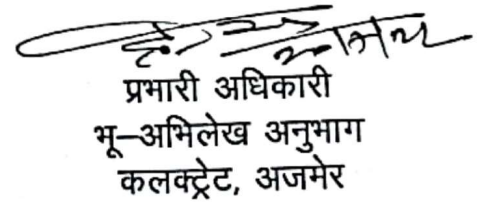 प्रभारी अधिकारी
भू–अभिलेख अनुभाग
कलक्ट्रेट, अजमेर